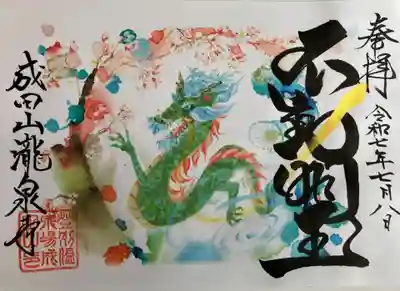 奉拝
令和七年七月八日
不動明王
成田山瀧泉寺